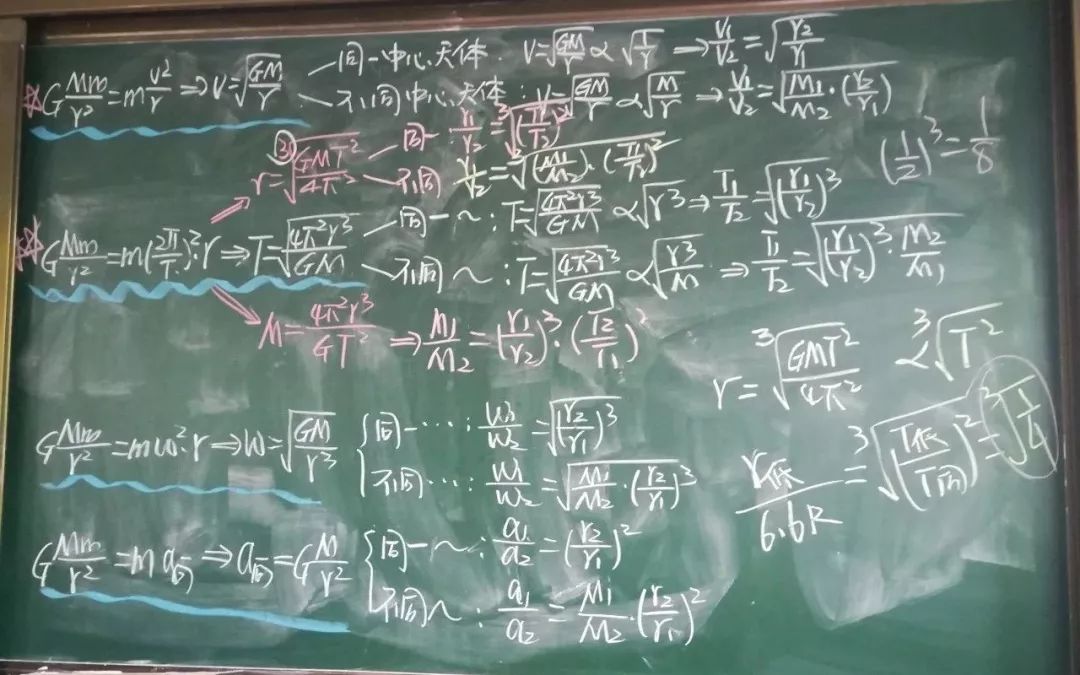 ☆G Mm/r² = m v²/r ⇒ v=√(GM/r) 同一中心天体. v=√(GM/r) ∝ √(1/r) ⇒ v₁/v₂ = √(r₂/r₁)
不同中心天体: v=√(GM/r) ∝ √(M/r) ⇒ v₁/v₂ = √(M₁/M₂·(r₂/r₁))
r=³√(GMT²/4π²) 同一 r₁/r₂ = ³√(T₁/T₂)²
不同 r₁/r₂ = ³√((M₁/M₂)·(T₁/T₂)²)
(1/2)³ = 1/8
☆G Mm/r² = m(2π/T)²·r ⇒ T=√(4π²r³/GM) 同一~: T=√(4π²r³/GM) ∝ √r³ ⇒ T₁/T₂ = √(r₁/r₂)³
不同~: T=√(4π²r³/GM) ∝ √(r³/M) ⇒ T₁/T₂ = √((r₁/r₂)³·M₂/M₁)
M=4π²r³/GT² ⇒ M₁/M₂ = (r₁/r₂)³·(T₂/T₁)²
r=³√(GMT²/4π²) ∝ ³√T²
G Mm/r² = mω²·r ⇒ ω=√(GM/r³) 同一···: ω₁/ω₂ = √(r₂/r₁)³
不同···: ω₁/ω₂ = √(M₁/M₂·(r₂/r₁)³)
r低/6.6R = ³√(T低/T同)² = ³√(1/4)
G Mm/r² = ma向 ⇒ a向=G M/r² 同一~: a₁/a₂ = (r₂/r₁)²
不同~: a₁/a₂ = M₁/M₂·(r₂/r₁)²